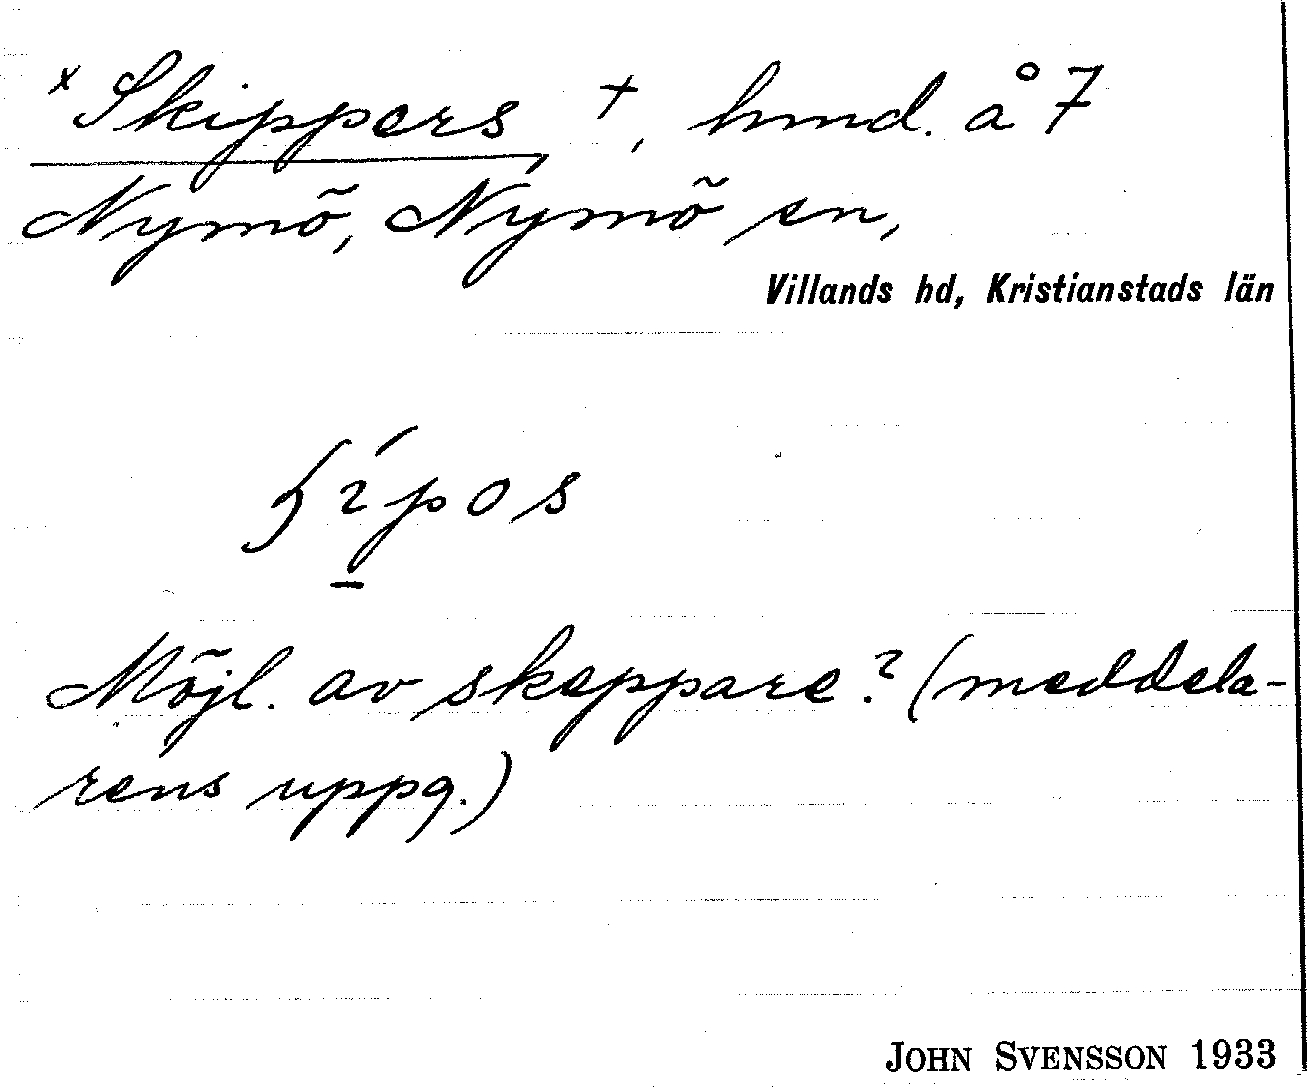 x Skippers +, hmd. å 7
Nymö, Nymö sn,
Villands hd, Kristianstads län
ʃípos
Möjl. av skeppare? (meddela-
rens uppg.)
JOHN SVENSSON 1933